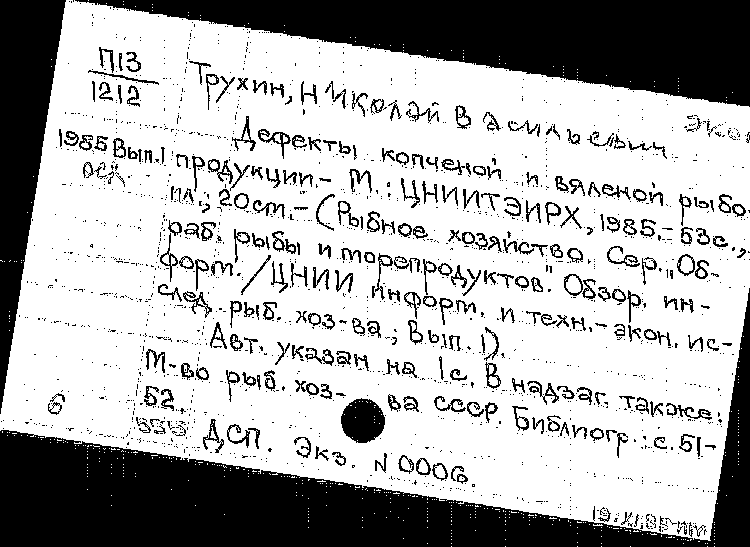 П13
1212
Трухин, Николай Васильевич
Дефекты копченой и вяленой рыбо-
1985 Вып.1 продукции.- М.: ЦНИИТЭИРХ, 1985.- 53с.,
ил.; 20см.- (Рыбное хозяйство. Сер. „Об-
раб. рыбы и морепродуктов." Обзор. ин-
форм. / ЦНИИ информ. и техн.-экон. ис-
след. рыб. хоз-ва; Вып. 1).
Авт. указан на 1с. В надзаг. также:
М-во рыб. хоз-ва СССР. Библиогр.: с. 51-
52.
6
ДСП. Экз. N 0006.
19.XI.85